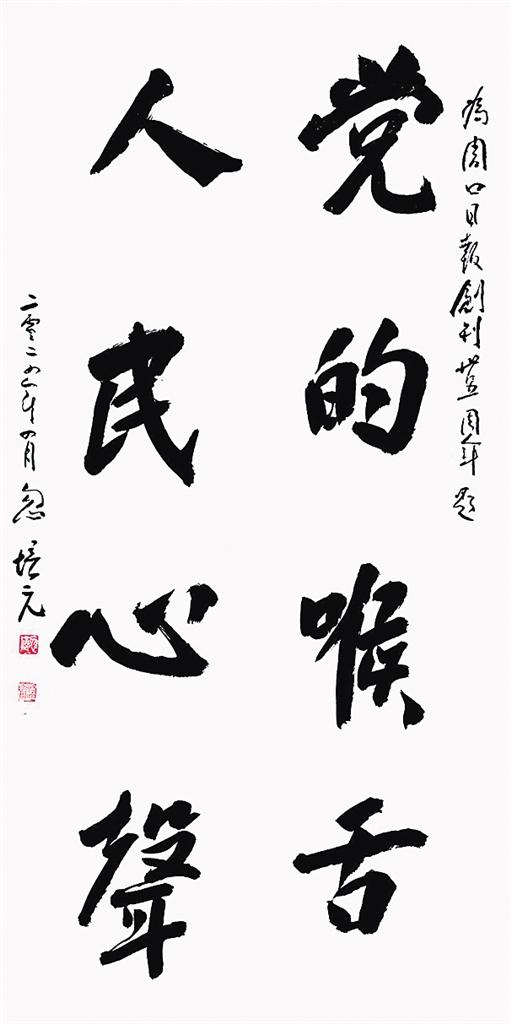 為周口日報創刊卅五周年題
党的喉舌
人民心聲
二零二五年四月 忽培元